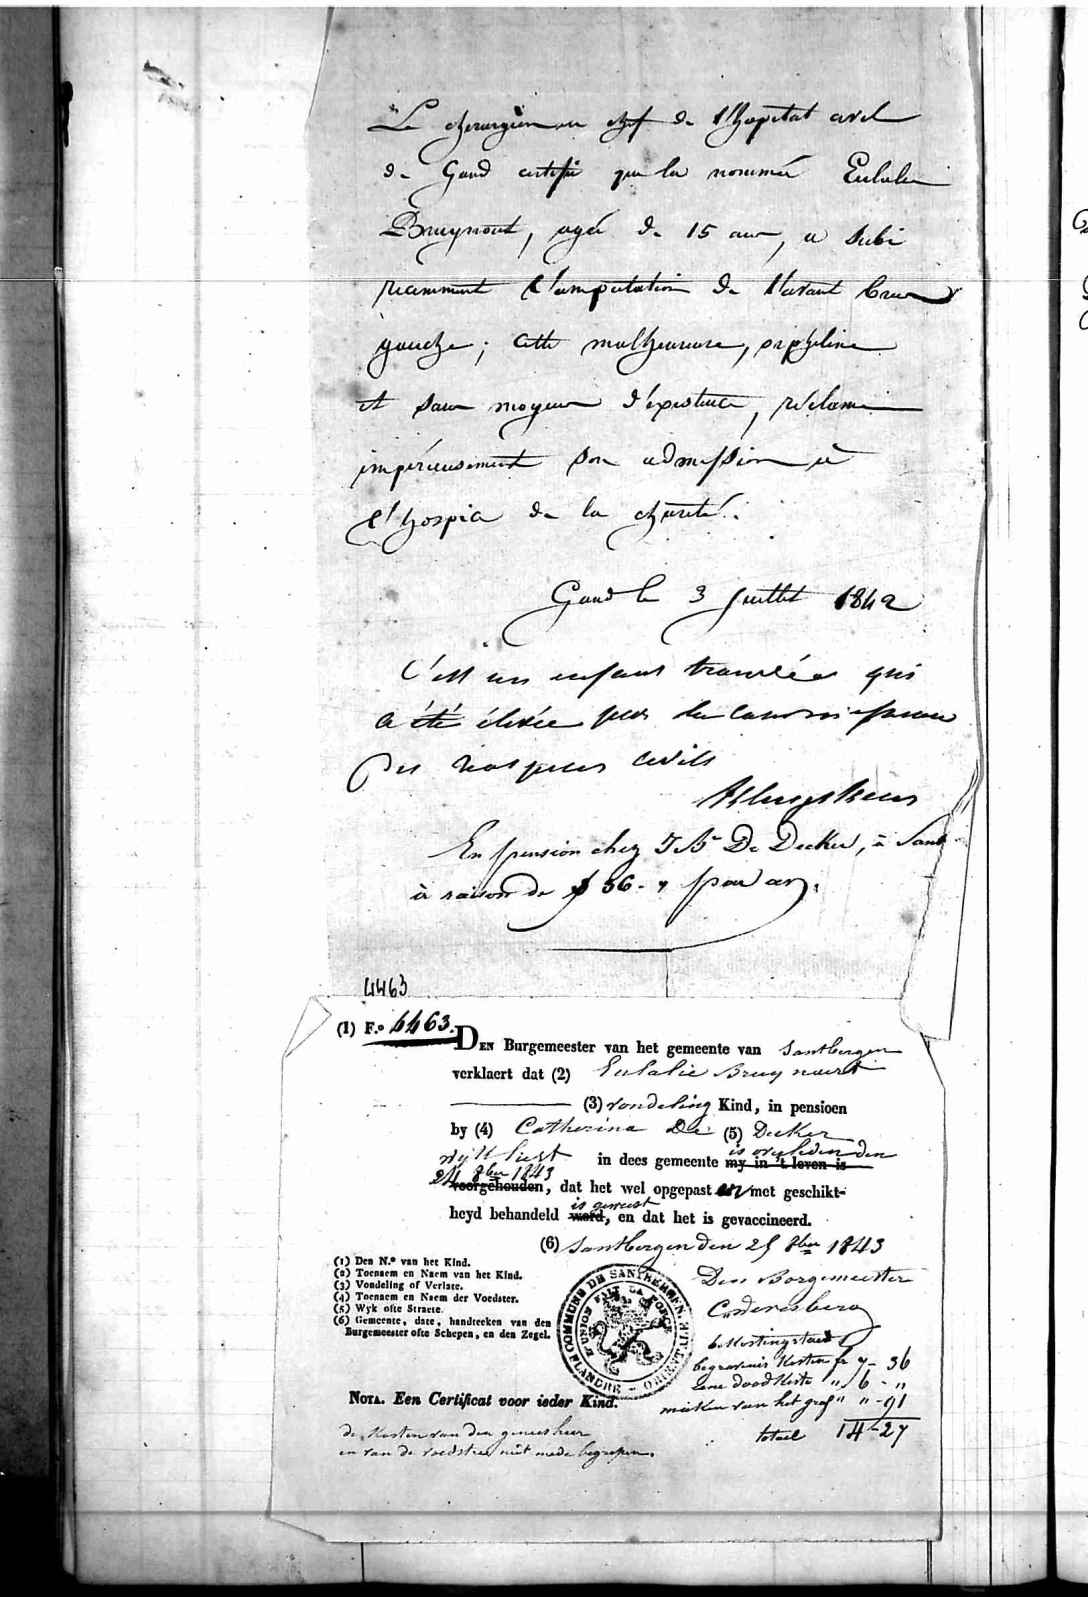 Le chirurgien en chef de l'hopital civil
de Gand certifie que la nommée Eulalie
Bruynout, agée de 15 ans, a subi
récemment l'amputation de l'avant bras
gauche; cette malheureuse, orpheline
et sans moyens d'existence, réclame
impérieusement son admission à
l'hospice de la charité.
Gand le 3 Juillet 1842
C'est un enfant trouvée qui
a été élevée par la commission
des hospices civils
En pension chez J B.te De Decker, à Sant
à raison de 36 - " par an.
4463
(1) F.º 4463.
DEN Burgemeester van het gemeente van Santbergen
verklaert dat (2) Eulalie Bruynaert
(3) vondeling Kind, in pensioen
by (4) Catherina De (5) Decker
is overleden den
wyk in dees gemeente my in 't leven is
24 8ber 1843
voorgehouden, dat het wel opgepast en met geschikt-
is geweest
heyd behandeld word, en dat het is gevaccineerd.
(6) Santbergen den 25 8ber 1843
(1) Den N.º van het Kind.
(2) Toenaem en Naem van het Kind.
(3) Vondeling of Verlate.
(4) Toenaem en Naem der Voedster.
(5) Wyk ofte Straete.
(6) Gemeente, date, handteeken van den
Burgemeester ofte Schepen, en den Zegel.
COMMUNE DE SANTBERGEN
FLANDRE - ORIENTALE
L'UNION FAIT LA FORCE
Den Borgemeester
bekostingstaet
begravenis kosten fr 7 - 36
eene doodkiste " 6 - "
maeken van het graf " " - 91
totael 14 - 27
NOTA. Een Certificat voor ieder Kind.
de kosten van den geneesheer
en van de voedster niet mede begrepen.